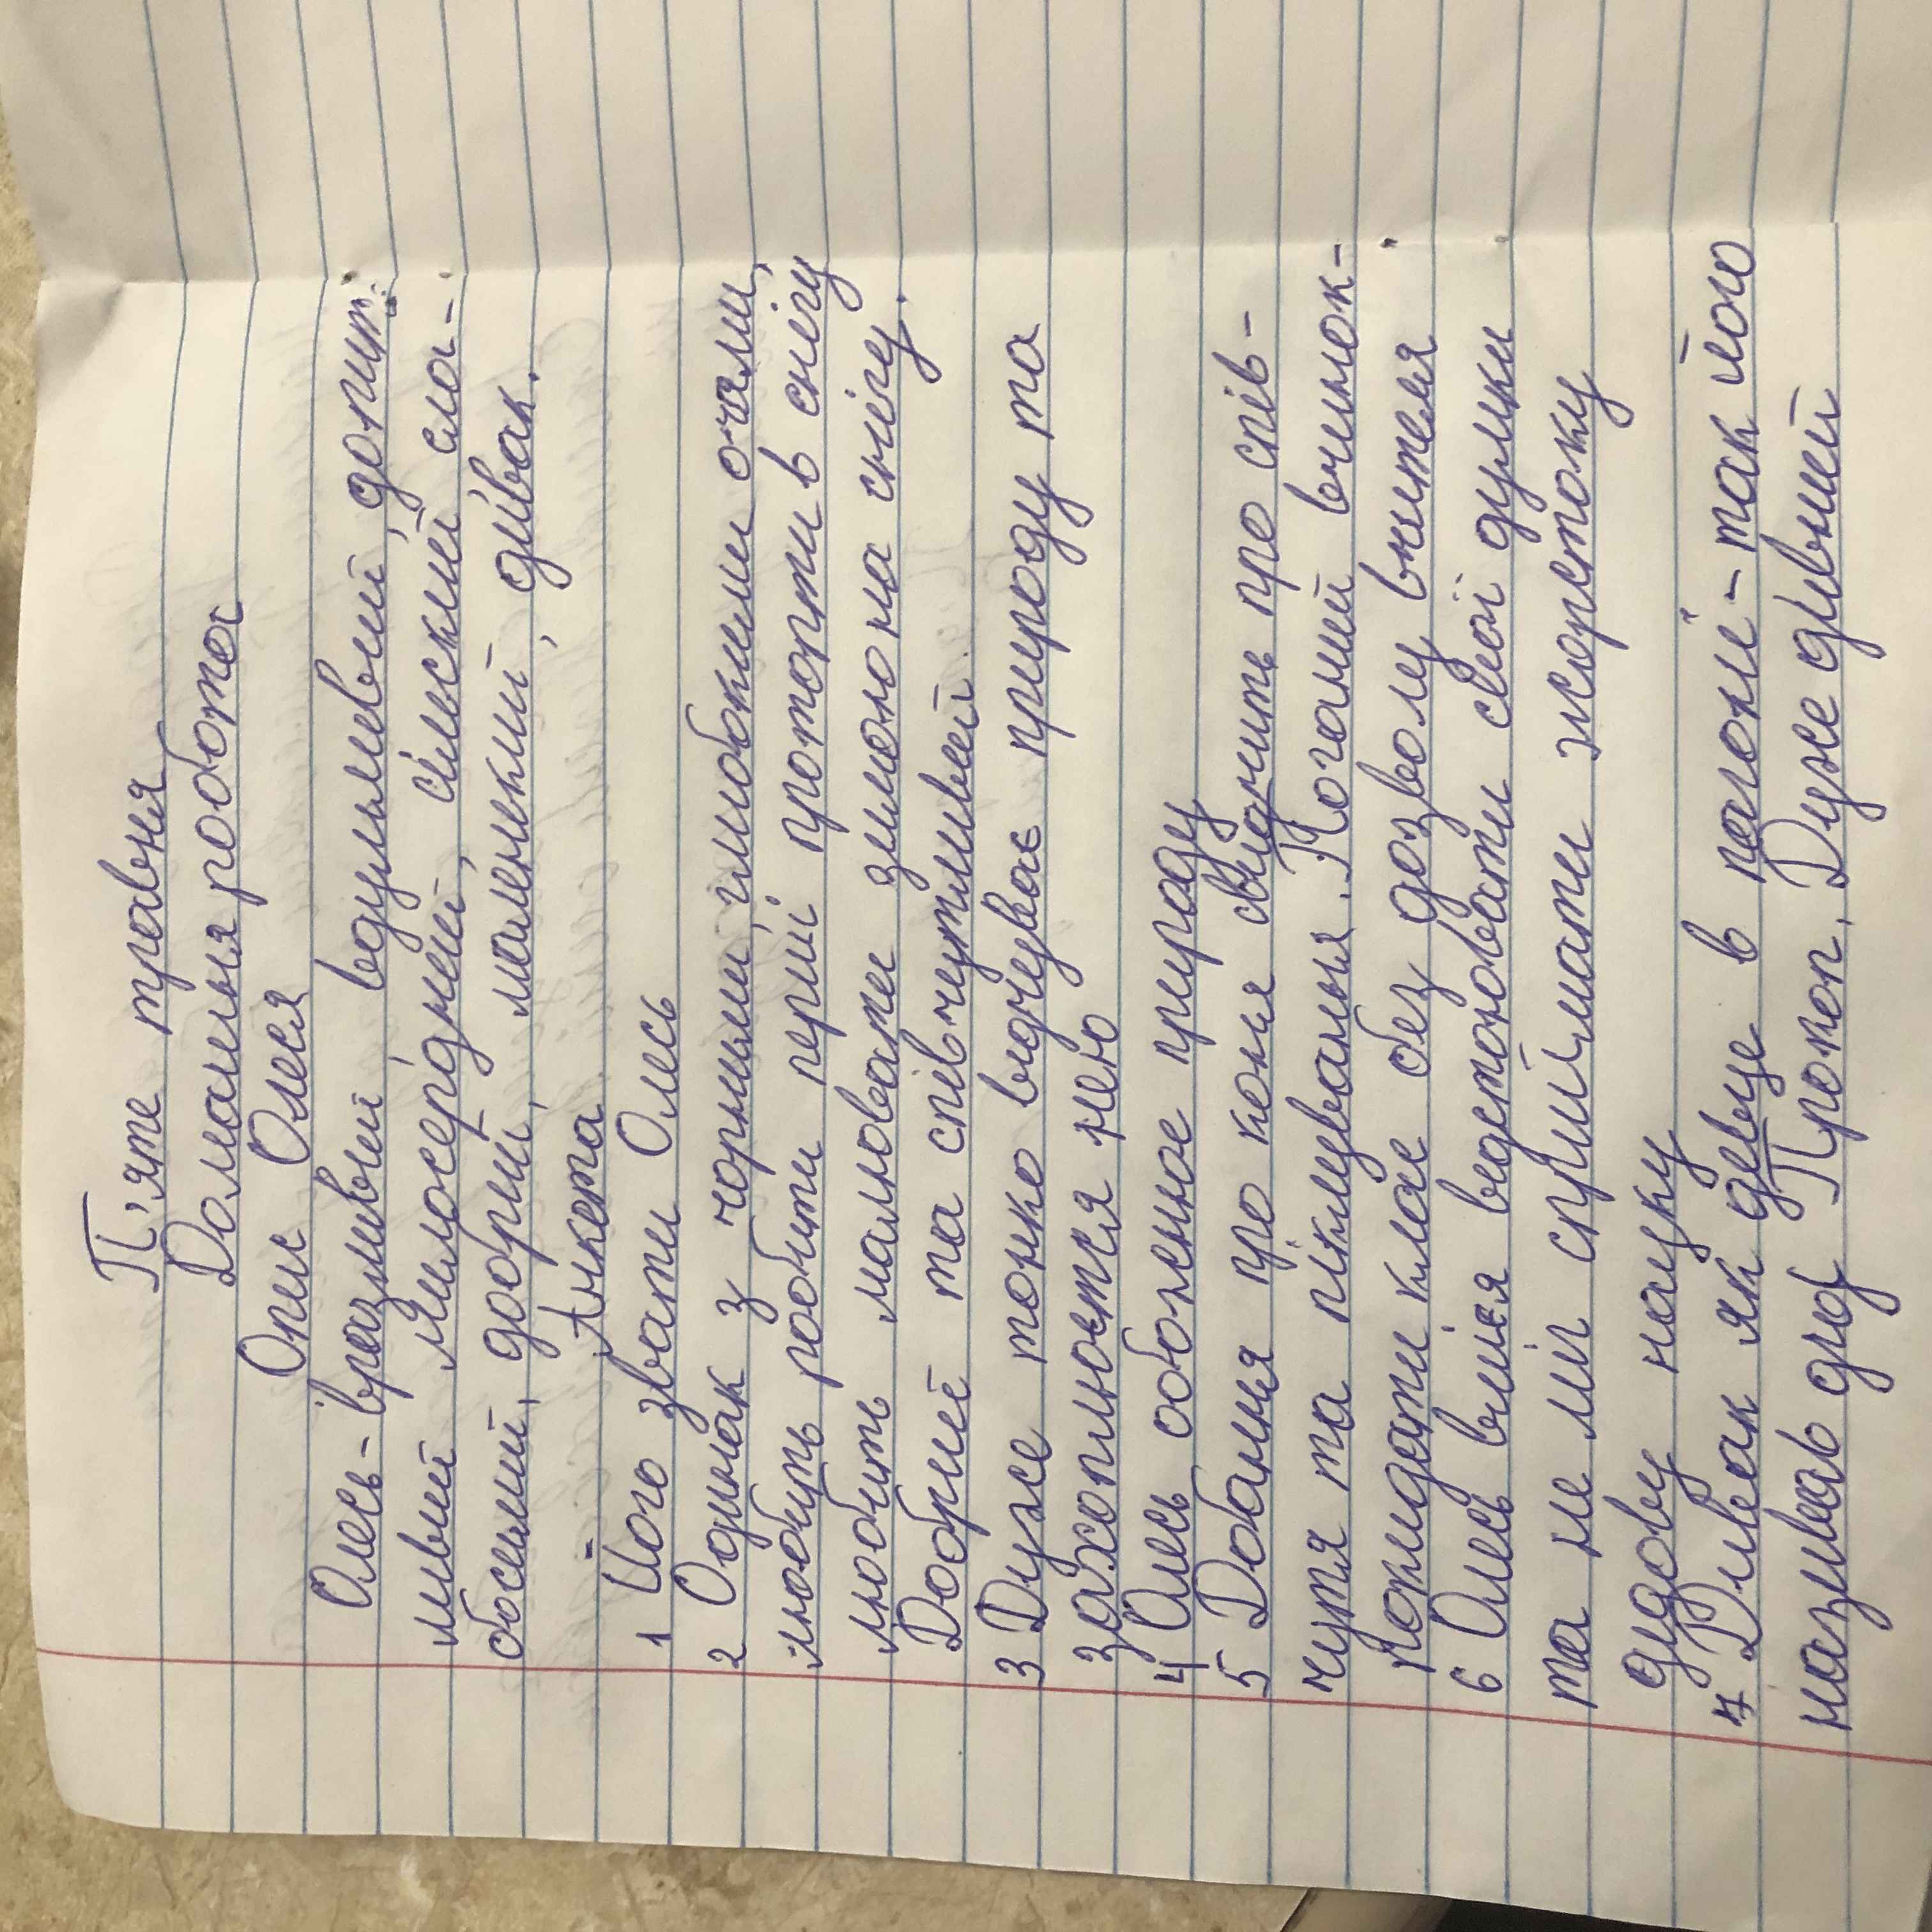 П'яте травня
Домашня робота
Опис Олеся
Олесь - вразливий, вдумливий, допит-
ливий, милосердний, сільский сла-
босилий, добрий, маленький, дивак.
Анкета
1 Його звати Олесь
2 Одинак з чорними, глибокими очами,
любить робити перші протопти в снігу
любить малювати зимою на снігу.
Добрий та співчутливий.
3 Дуже тонко відчуває природу та
захоплюється нею
4 Олесь обоженює природу
5 Дбання про коня свидчить про спів-
чутя та піклування. Поганий вчинок -
покидати клас без дозволу вчителя
6 Олесь вміея відстоювати свої думки
та не міг сприймати жорстоку
дідову науку
7 Дивак як дівце в пагоні - так його
називав дід Прокоп. Дуже дивний